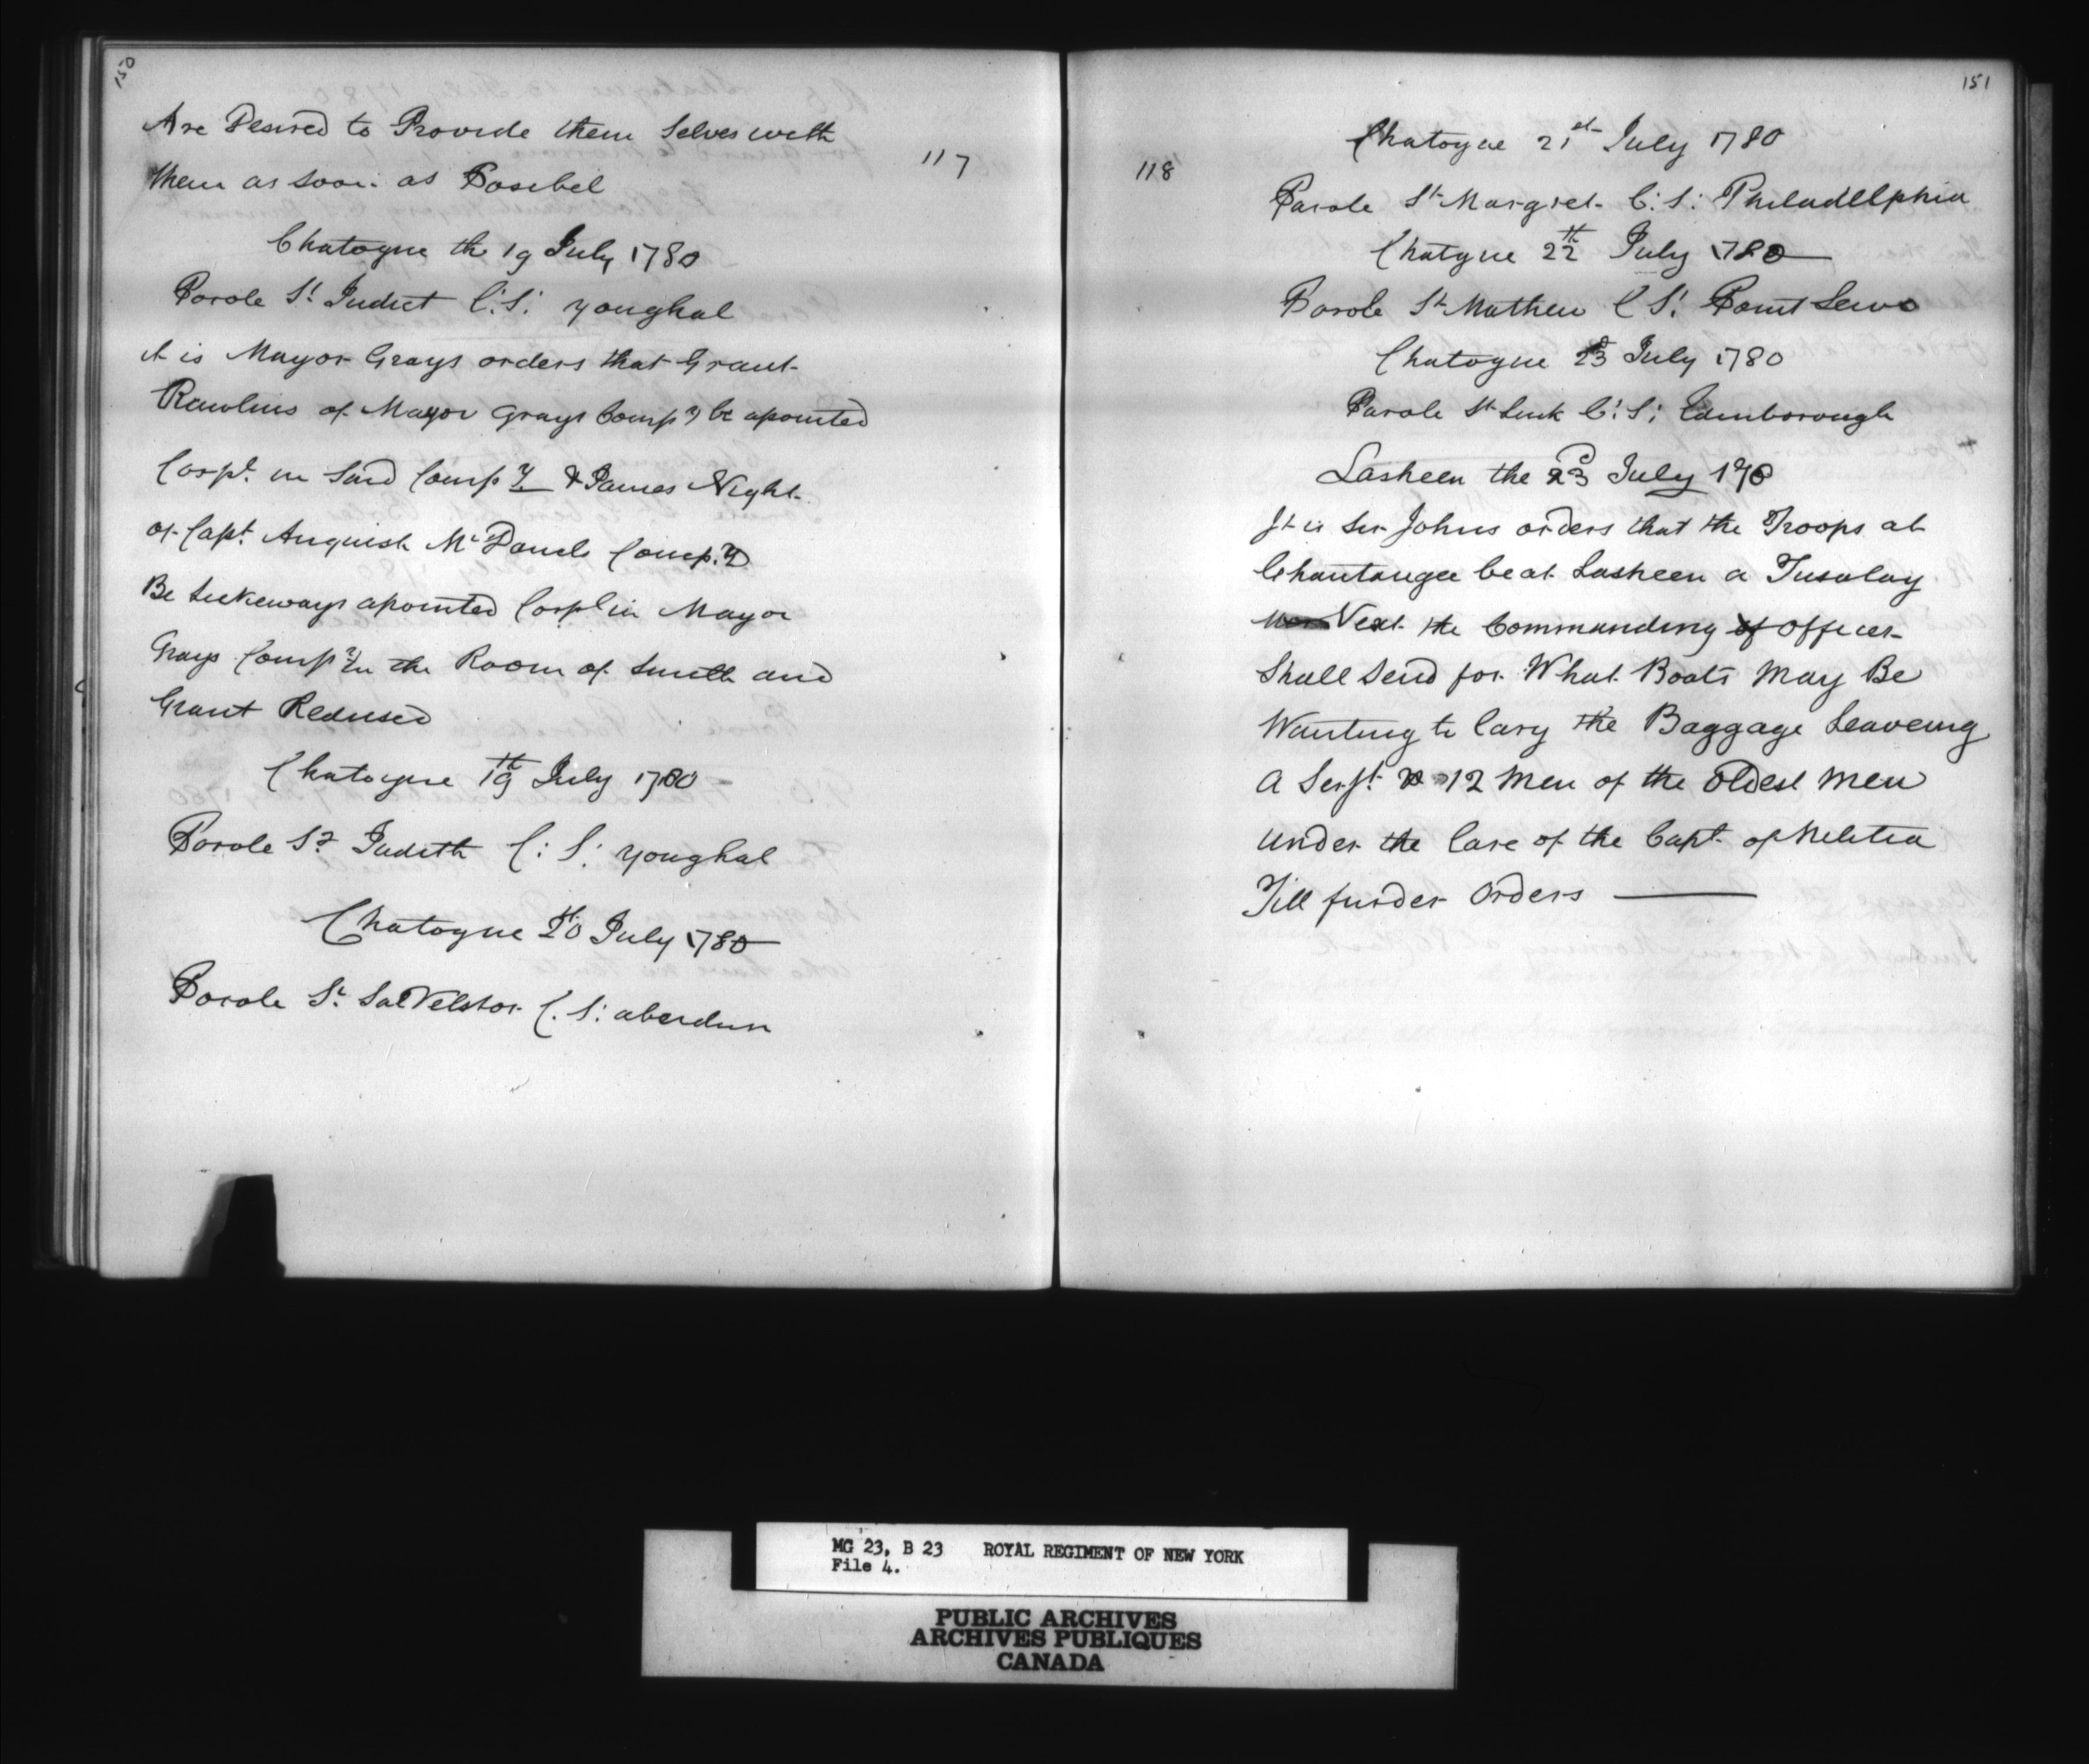 150
Are Desired to Provide them Selves with
117
them as soon as Posibel
Chatogue th 19 July 1780
Parole St Judict C: S: yonghal
it is Mayor Grays orders that Grant
Rawlins of Mayor Grays Compy be apointed
Corpl. in Said Compy & James Night
of Capt. Anguish McDanels Compy
Be Likeways apointed Corpl in Mayor
Grays Compy In the Room of Smith and
Grant Redused
Chatogue 19th July 1780
Parole St Judith C: S: yonghal
Chatogue 20th July 1780
Parole St. Salvelstor C. S: aberdun
151
Chatogue 21st July 1780
118
Parole St Margret C: S: Philadellphia
Chatgue 22th July 1780
Parole St Mathew C S: Point
Chatogue 23d July 1780
Parole St Luk C: S: Edinborough
Lasheen the 23d July
It is Sir Johns orders that the Troops at
Chautaugee be at Lasheen a Tusalay
Next the Commanding of Officer
Shall Send for What Boats May Be
Wanting to Cary the Baggage Leaveing
A Serjt. & 12 Men of the Oldest Men
under the Care of the Capt. of Melitia
Till furder Orders
MG 23, B 23 ROYAL REGIMENT OF NEW YORK
File 4.
PUBLIC ARCHIVES
ARCHIVES PUBLIQUES
CANADA